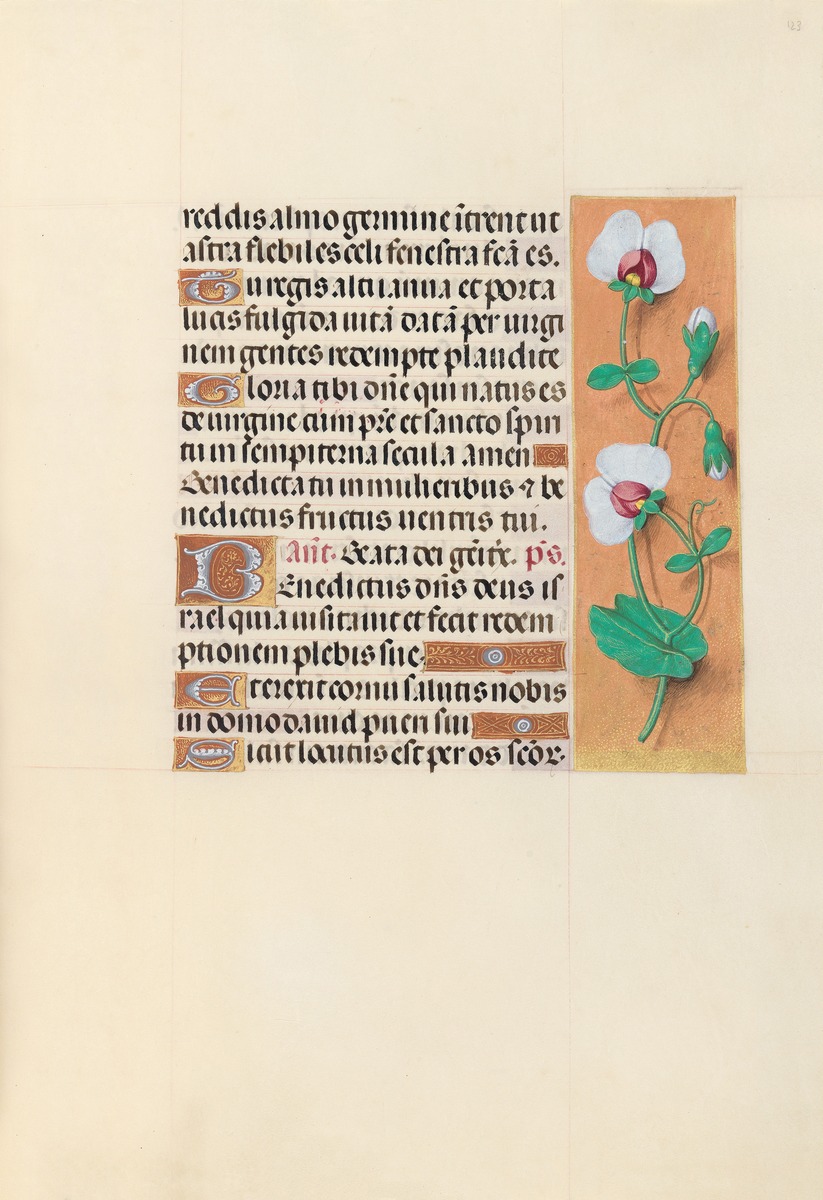 123
reddis almo germine ītrent ut
astra flebiles celi fenestra fcā es.
Tu regis alti ianua et porta
lucis fulgida uitā datā per uirgi
nem gentes redempte plaudite
Gloria tibi dn̄e qui natus es
de uirgine cum pr̄e et sancto spiri
tu in sempiterna secula amen
Benedicta tu in mulieribus ⁊ be
nedictus fructus uentris tui.
An̄t. Beata dei gēitx. ps.
BEnedictus dn̄s deus is
rael quia uisitauit et fecit redem
ptionem plebis sue
Et erexit cornu salutis nobis
in domo dauid pueri sui
Sicut locutus est per os scōr.